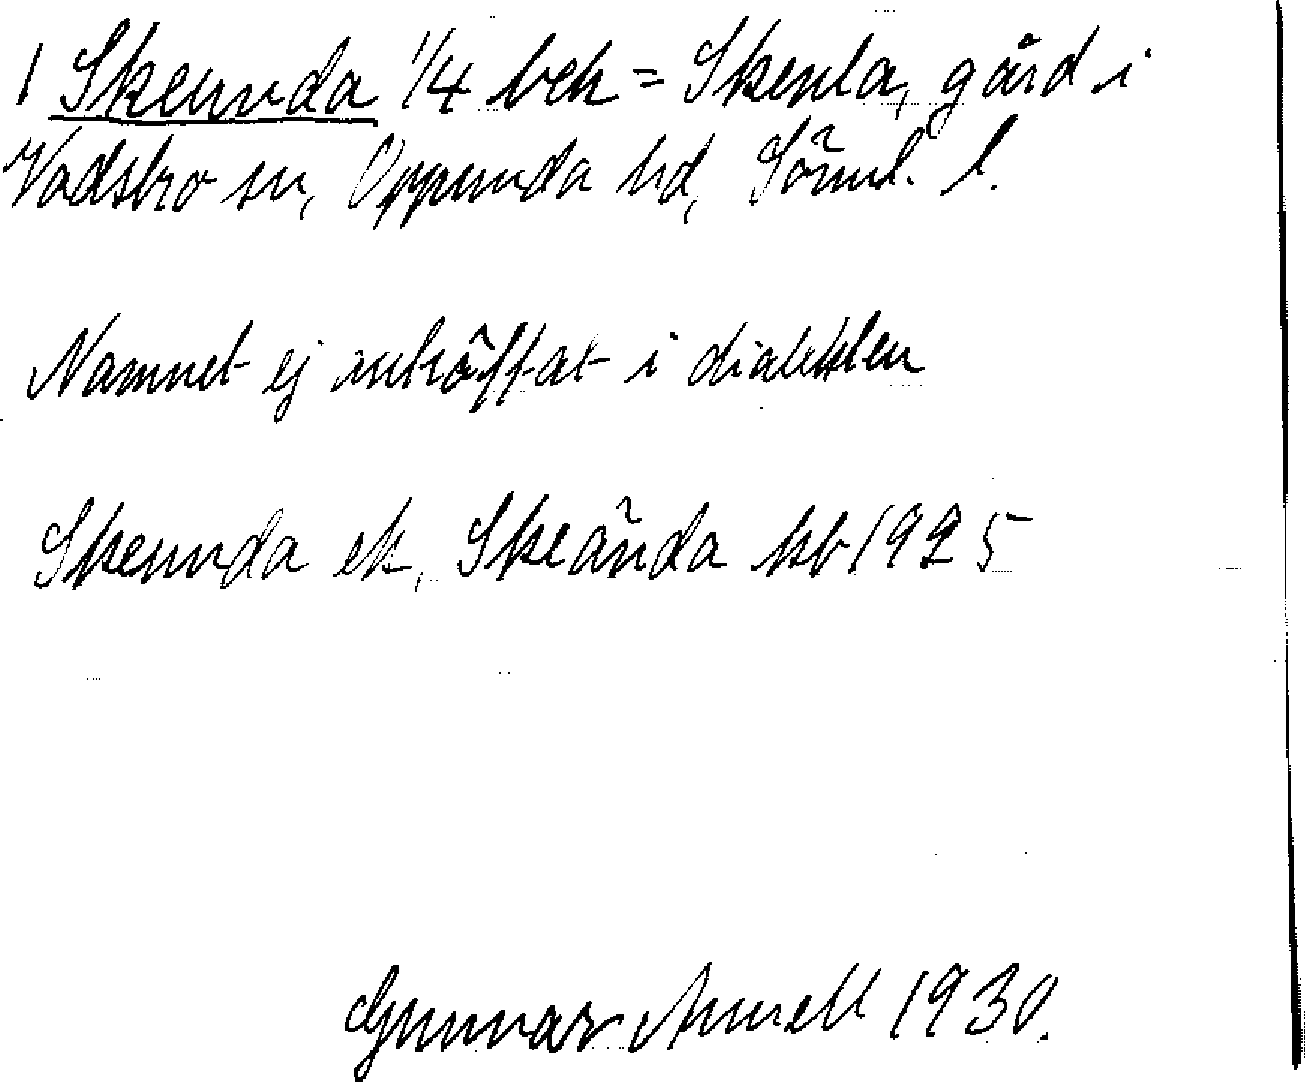 1 Skeunda 1/4 bek = Skenla, gård i
Vadsbro sn, Oppunda hd, Söml. l.
Namnet ej anträffat i dialekten
Skeunda ek, Skeända kb 1925
Gunnar Arnell 1930.